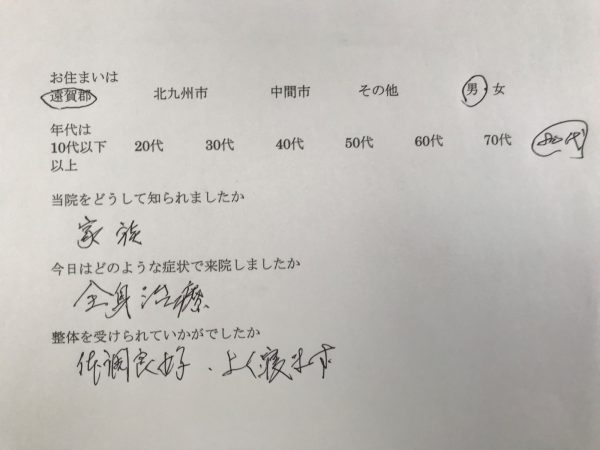 お住まいは
遠賀郡 北九州市 中間市 その他 男 女
年代は
10代以下 20代 30代 40代 50代 60代 70代 80代
以上
当院をどうして知られましたか
家族
今日はどのような症状で来院しましたか
全身治療
整体を受けられていかがでしたか
体調良好、よく寝ます